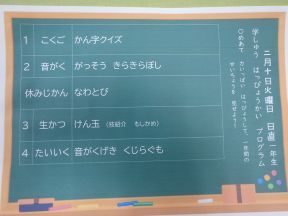 二月十日火曜日 日直 一年生
学しゅう はっぴょうかい プログラム
○めあて 力いっぱい はっぴょうして、一年間の
せいちょうを 見せよう!
1 こくご かん字クイズ
2 音がく がっそう きらきらぼし
休みじかん なわとび
3 生かつ けん玉 (技紹介 もしかめ)
4 たいいく 音がくげき くじらぐも